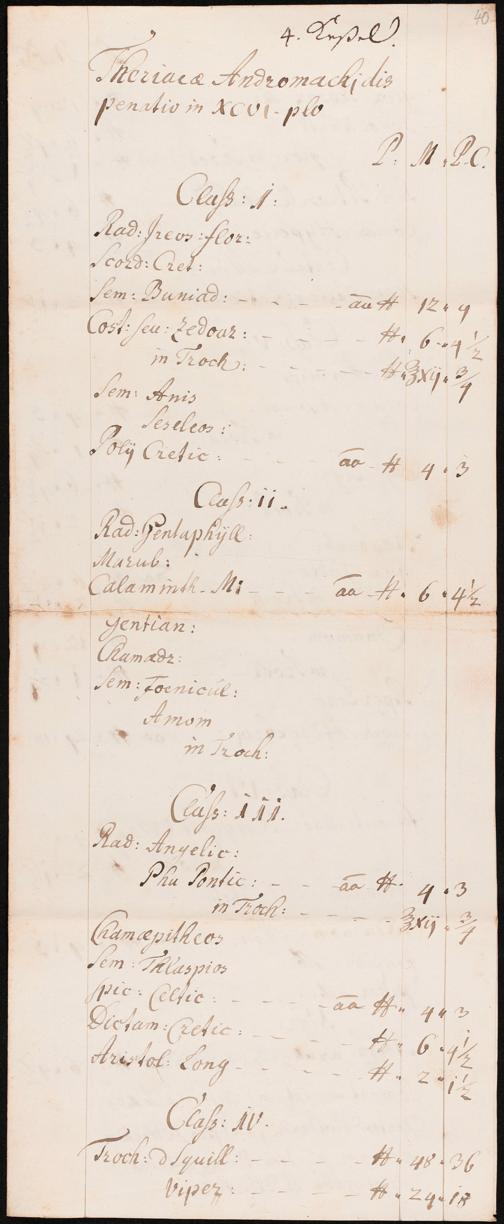 40
4. Keßel.
Theriacæ Andromachi dis
pensatio in XCVI-plo
P: M. P.C.
Claß: I:
Rad: Jreos: flor:
Scord: Cret:
Sem: Buniad: - - - - āā ℔ 12 " 9
Cost: seu: Zedoar: - - - ℔. 6 " 4 1/2
in Troch: - - - - ℔. ℥xij " 3/4
Sem: Anis
Seseleos:
Polÿ Cretic: - - - āā ℔ 4 " 3
Claß: ii.
Rad: Pentaphÿll:
Marub:
Calaminth. M: - - - āā ℔. 6 " 4 1/2
Gentian:
Chamædr:
Sem: Foenicul:
Amom
in Troch:
Claß: iii.
Rad: Angelic:
Phu Pontic: - - - āā ℔. 4 " 3
in Troch: - - - - ℥xij " 3/4
Chamæpitheos
Sem: Thlaspios
Spic: Celtic: - - - - āā ℔ " 4 " 3
Dictam: Cretic: - - - - ℔ " 6 " 4 1/2
Aristol: Long - - - - ℔ " 2 " 1 1/2
Claß: IV.
Troch: d Squill: - - - - ℔ " 48 " 36
Viper - - - - ℔ " 24 " 18